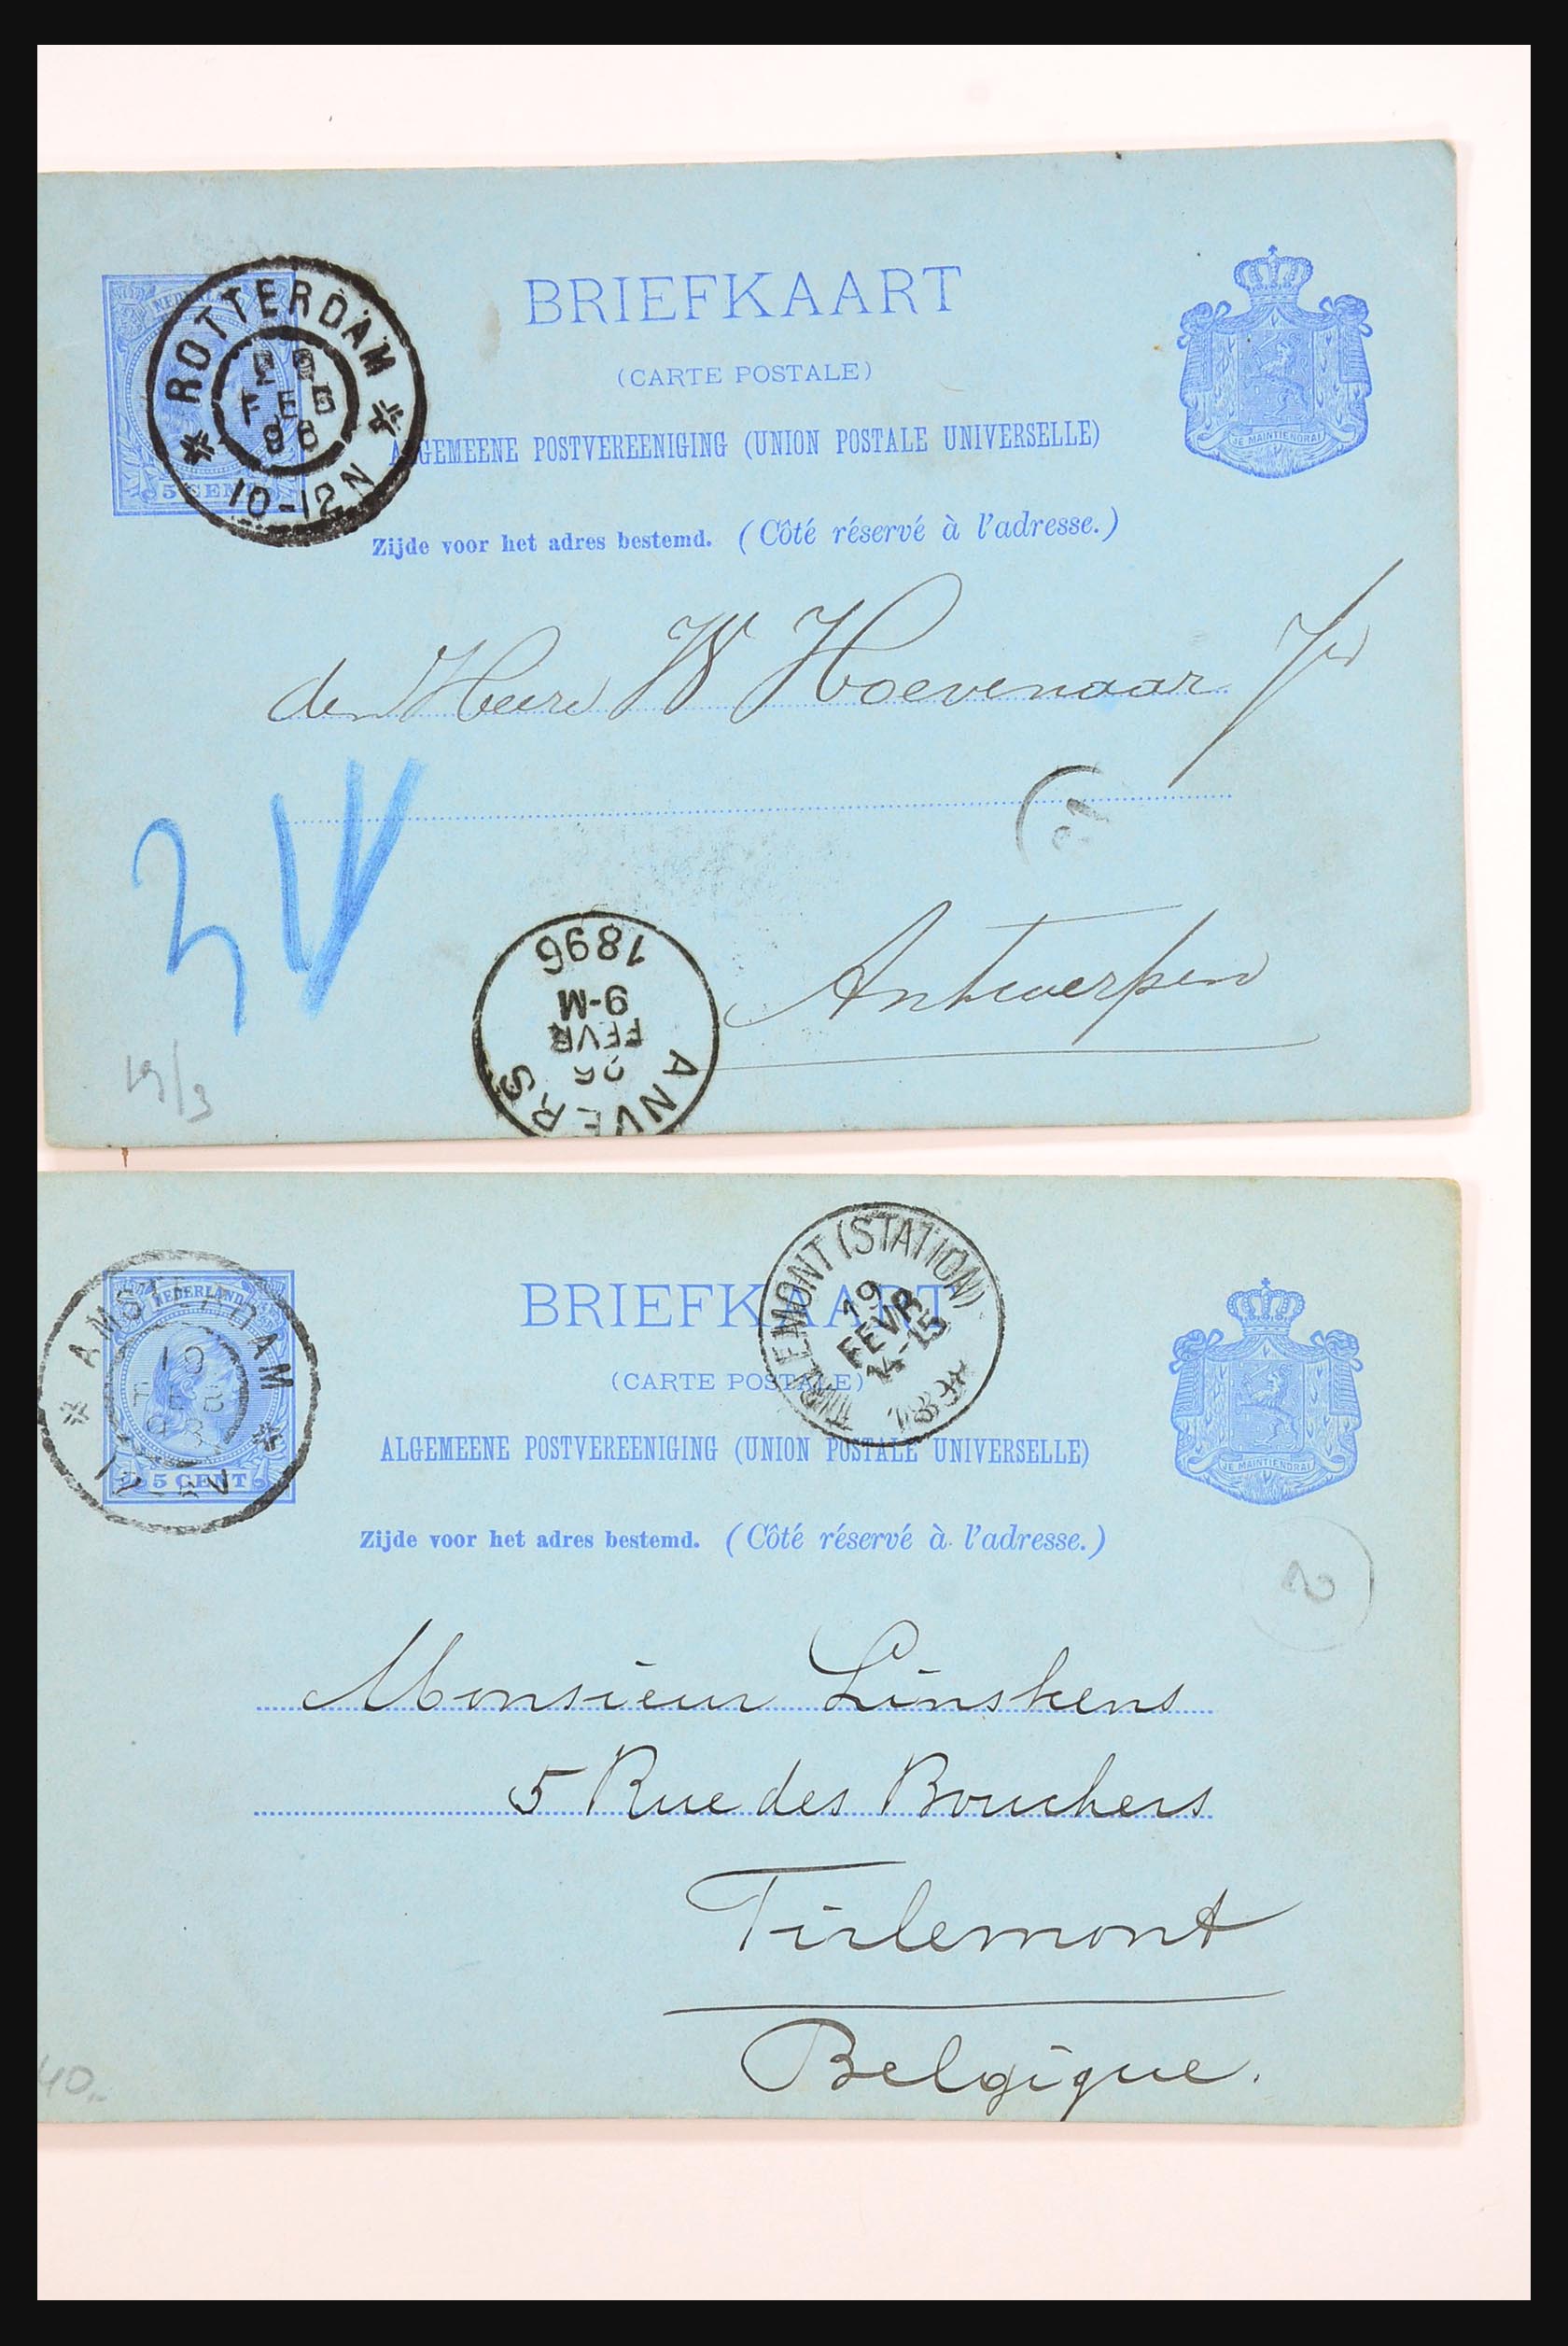 BRIEFKAART
(CARTE POSTALE)
ALGEMEENE POSTVEREENIGING (UNION POSTALE UNIVERSELLE)
Zijde voor het adres bestemd. (Côté réservé à l'adresse.)
JE MAINTIENDRAI
5 CENT
ROTTERDAM
FEB
96
10-12N
den Heere W Hoevenaar Jr
Antwerpen
ANVERS
26
FEVR
9-M
1896
19/3
BRIEFKAART
(CARTE POSTALE)
ALGEMEENE POSTVEREENIGING (UNION POSTALE UNIVERSELLE)
Zijde voor het adres bestemd. (Côté réservé à l'adresse.)
JE MAINTIENDRAI
NEDERLAND
5 CENT
AMSTERDAM
19
FEB
TIRLEMONT (STATION)
19
FEVR
14-15
Monsieur Linskens
5 Rue des Bouchers
Tirlemont
Belgique.
40.-